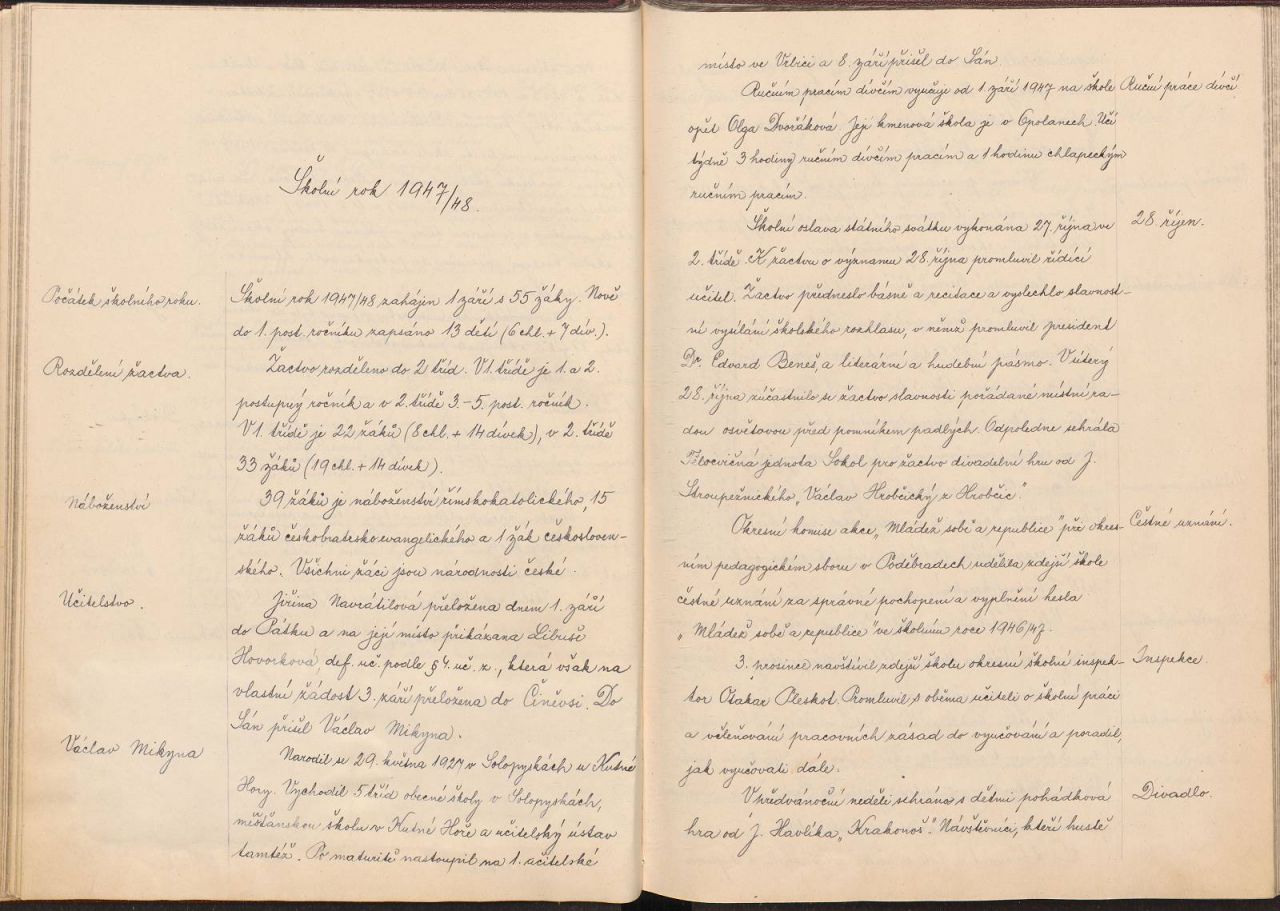 Školní rok 1947/48.
Počátek školního roku.
Školní rok 1947/48 zahájen 1 září s 55 žáky. Nově
do 1. post. ročníku zapsáno 13 dětí (6 chl. + 7 dív.).
Rozdělení žactva.
Žactvo rozděleno do 2 tříd. V 1. třídě je 1. a 2.
postupný ročník a v 2. třídě 3.-5. post. ročník.
V 1. třídě je 22 žáků (8 chl. + 14 dívek), v 2. třídě
33 žáků (19 chl. + 14 dívek).
Náboženství
39 žáků je náboženství římskokatolického, 15
žáků českobratrsko evangelického a 1 žák českosloven-
ského. Všichni žáci jsou národnosti české.
Učitelstvo.
Jiřina Navrátilová přeložena dnem 1. září
do Pátku a na její místo přikázana Libuše
Hovorková, def. uč. podle § 4. uč. z., která však na
vlastní žádost 3. září přeložena do Činěvsi. Do
Sán přišel Václav Mikyna.
Václav Mikyna
Narodil se 29. května 1927 v Solopyskách u Kutné
Hory. Vychodil 5 tříd obecné školy v Solopyskách,
měšťanskou školu v Kutné Hoře a učitelský ústav
tamtéž. Po maturitě nastoupil na 1. učitelské
místo ve Vrbici a 8. září přišel do Sán.
Ručním pracím dívčím vyučuje od 1. září 1947 na škole
Ruční práce dívčí
opět Olga Dvořáková. Její kmenová škola je v Opolanech. Učí
týdně 3 hodiny ručním dívčím pracím a 1 hodinu chlapeckým
ručním pracím.
Školní oslava státního svátku vykonána 27. října ve
28. říjen.
2. třídě. K žactvu o významu 28. října promluvil řídící
učitel. Žactvo předneslo básně a recitace a vyslechlo slavnost-
ní vysílání školského rozhlasu, v němž promluvil president
Dr. Edvard Beneš, a literární a hudební pásmo. V úterý
28. října zúčastnilo se žactvo slavnosti pořádané místní ra-
dou osvětovou před pomníkem padlých. Odpoledne sehrála
Tělocvičná jednota Sokol pro žactvo divadelní hru od J.
Stroupežnického „Václav Hrobčický z Hrobčic".
Okresní komise akce „Mládež sobě a republice" při okres-
Čestné uznání.
ním pedagogickém sboru v Poděbradech udělila zdejší škole
čestné uznání za správné pochopení a vyplnění hesla
„Mládež sobě a republice" ve školním roce 1946/47.
3. prosince navštívil zdejší školu okresní školní inspek-
Inspekce.
tor Otakar Pleskot. Promluvil s oběma učiteli o školní práci
a včleňování pracovních zásad do vyučování a poradil,
jak vyučovati dále.
V předvánoční neděli sehrána s dětmi pohádková
Divadlo.
hra od J. Havlíka „Krakonoš". Návštěvníci, kteří hustě